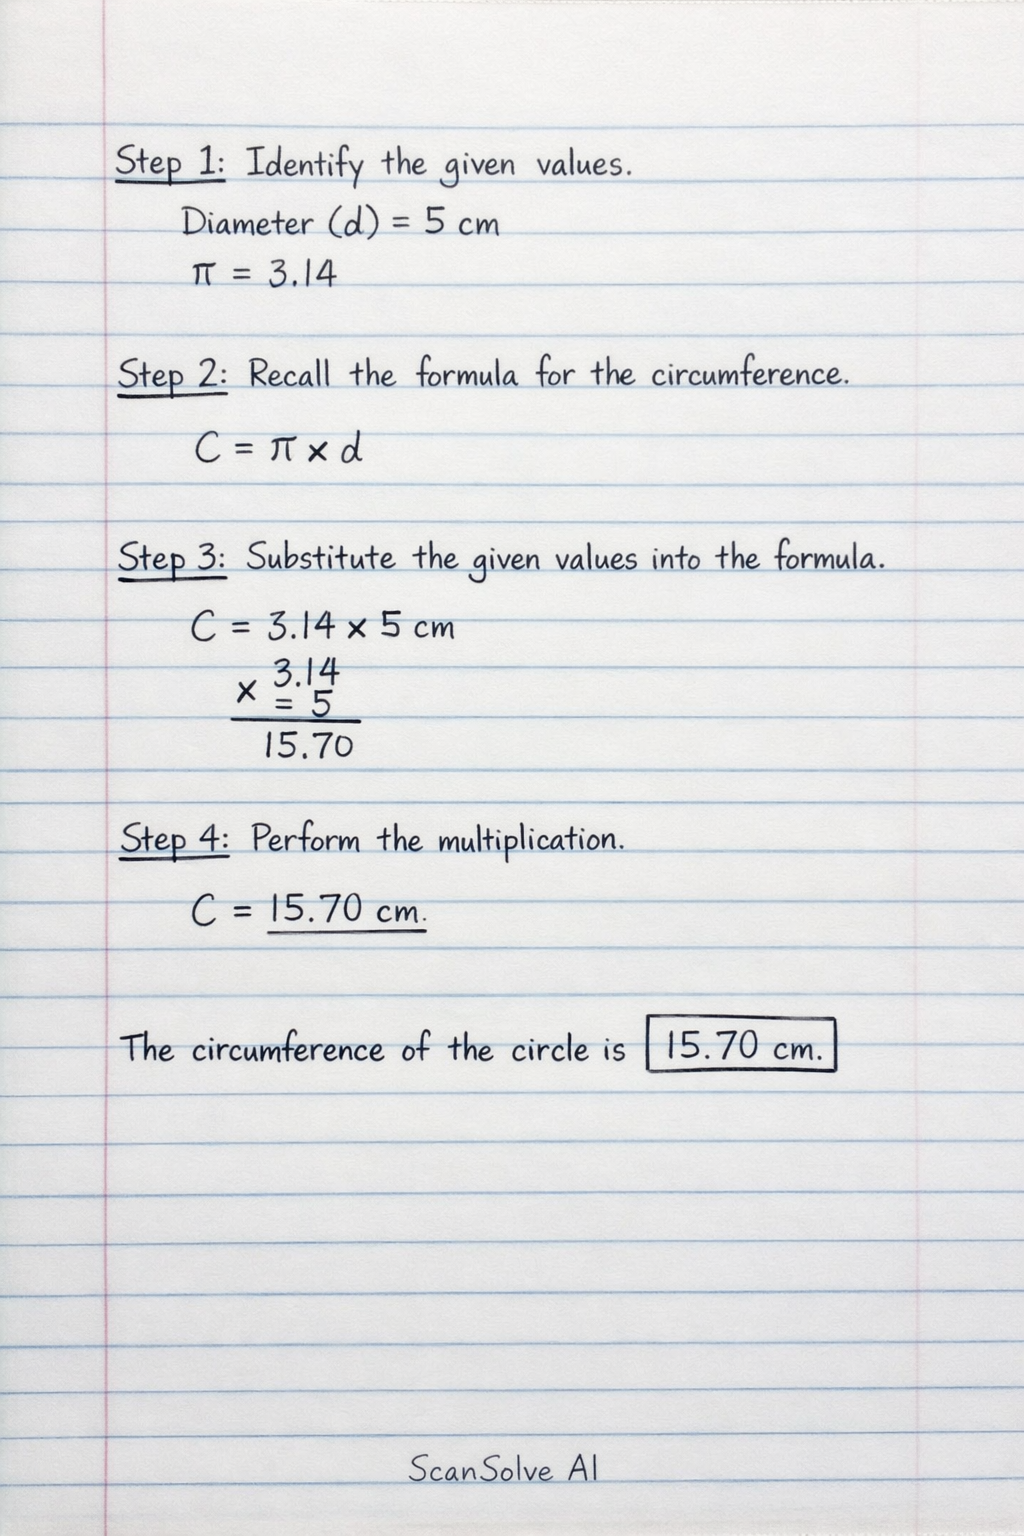 Step 1: Identify the given values.
Diameter (d) = 5 cm
π = 3.14
Step 2: Recall the formula for the circumference.
C = π × d
Step 3: Substitute the given values into the formula.
C = 3.14 × 5 cm
3.14
× = 5
15.70
Step 4: Perform the multiplication.
C = 15.70 cm.
The circumference of the circle is 15.70 cm.
ScanSolve AI